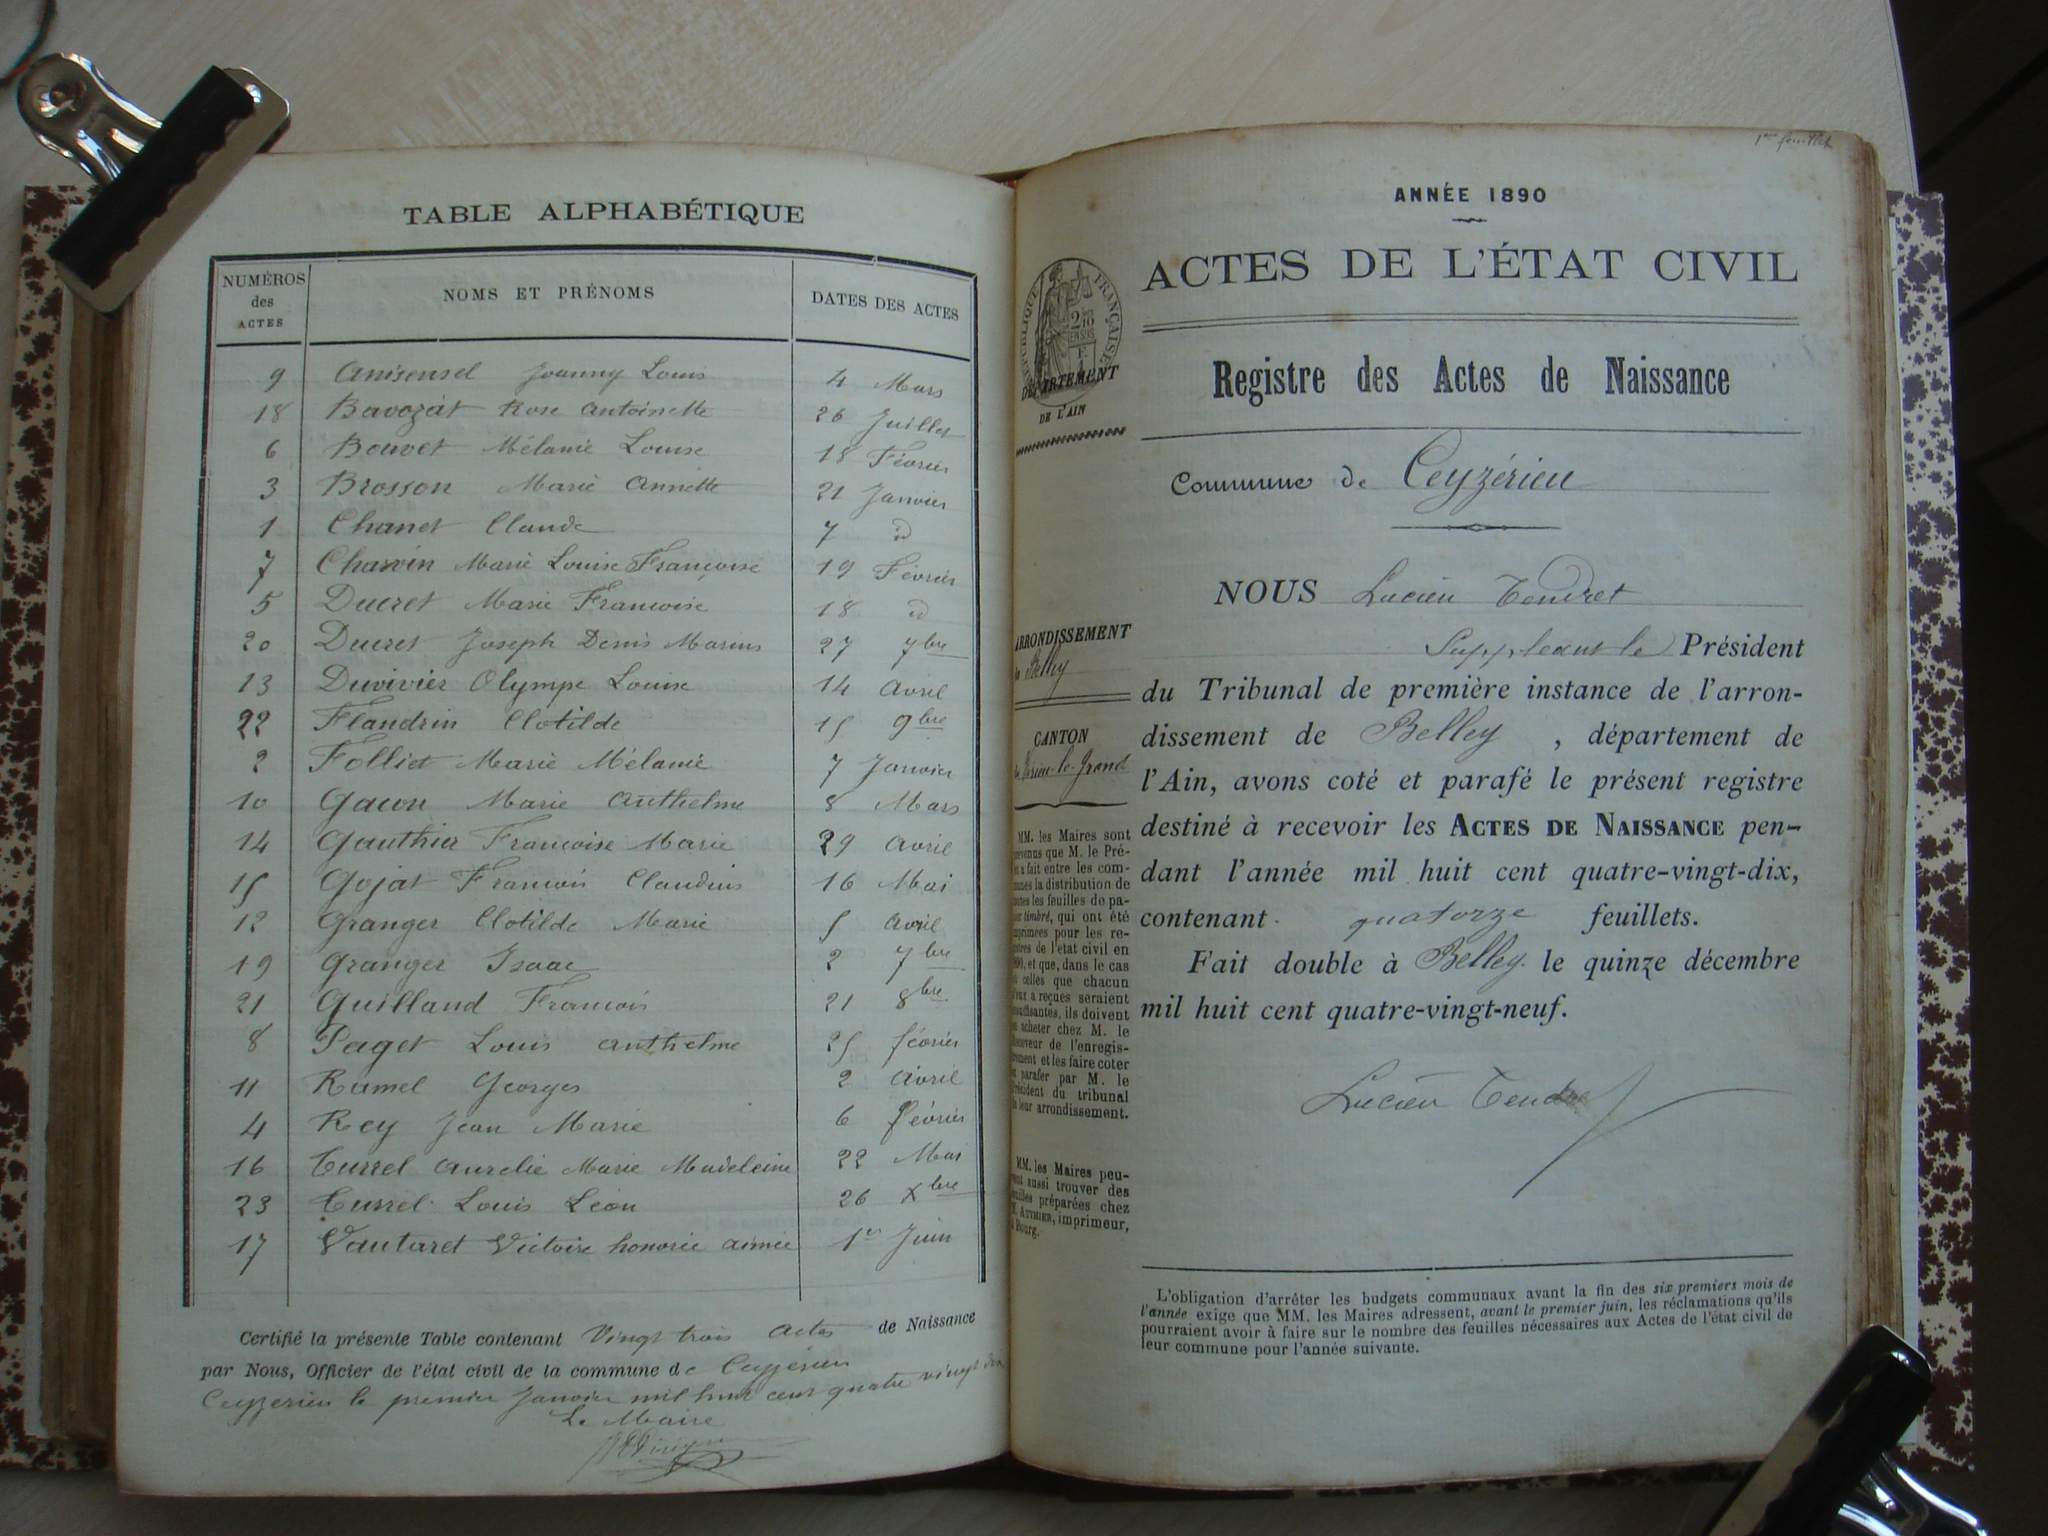 TABLE ALPHABÉTIQUE
NUMÉROS des ACTES NOMS ET PRÉNOMS DATES DES ACTES
9 Joanny Louis 4 Mars
18 Bavozat Rose Antoinette 26 Juillet
6 Bouvet Mélanie Louise 18 Février
3 Brosson Marie Annette 21 Janvier
1 Chanet Claude 7 id
7 Charvin Marie Louise Françoise 19 Février
5 Ducret Marie Françoise 18 id
20 Ducret Joseph Denis Marius 27 7bre
13 Duvivier Olympe Louise 14 Avril
22 Flandrin Clotilde 15 9bre
2 Folliet Marie Mélanie 7 Janvier
10 Marie Anthelme 8 Mars
14 Gauthier Francoise Marie 29 Avril
15 Gojat Francois Claudius 16 Mai
12 Granger Clotilde Marie 5 Avril
19 Granger Isaac 2 7bre
21 Guilland Francois 21 8bre
8 Paget Louis Anthelme 25 février
11 Ramel Georges 2 Avril
4 Rey Jean Marie 6 février
16 Turrel Aurelie Marie Madeleine 22 Mai
23 Turrel Louis Léon 26 Xbre
17 Vautaret Victoire honorée aimée 1er Juin
Certifié la présente Table contenant Vingt trois Actes de Naissance
par Nous, Officier de l'état civil de la commune de Ceyzérieu
Ceyzerieu le premier Janvier mil huit cent quatre vingt
Le Maire
1er feuillet
ANNÉE 1890
ACTES DE L'ÉTAT CIVIL
RÉPUBLIQUE FRANÇAISE
DÉPARTEMENT
DE L'AIN
Registre des Actes de Naissance
Commune de Ceyzérieu
NOUS Lucien Tendret
Suppléant le Président
du Tribunal de première instance de l'arron-
dissement de Belley , département de
l'Ain, avons coté et parafé le présent registre
destiné à recevoir les ACTES DE NAISSANCE pen-
dant l'année mil huit cent quatre-vingt-dix,
contenant quatorze feuillets.
Fait double à Belley le quinze décembre
mil huit cent quatre-vingt-neuf.
Lucien Tendret
ARRONDISSEMENT
Belley
CANTON
Virieu-le-Grand
MM. les Maires sont
prévenus que M. le Pré-
fet a fait entre les com-
munes la distribution de
toutes les feuilles de pa-
pier timbré, qui ont été
imprimées pour les re-
gistres de l'état civil en
1890, et que, dans le cas
où celles que chacun
d'eux a reçues seraient
insuffisantes, ils doivent
en acheter chez M. le
Receveur de l'enregis-
trement et les faire coter
et parafer par M. le
Président du tribunal
de leur arrondissement.
MM. les Maires peu-
vent aussi trouver des
feuilles préparées chez
M. AUTHIER, imprimeur,
à Bourg.
L'obligation d'arrêter les budgets communaux avant la fin des six premiers mois de
l'année exige que MM. les Maires adressent, avant le premier juin, les réclamations qu'ils
pourraient avoir à faire sur le nombre des feuilles nécessaires aux Actes de l'état civil de
leur commune pour l'année suivante.